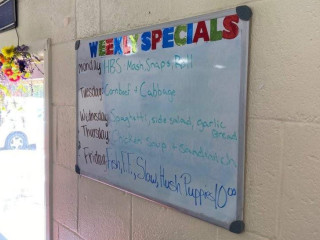 WEEKLY SPECIALS
Monday HBS Mash, Snaps, Roll
Tuesday Corn beef + Cabbage
Wednesday Spaghetti, side salad, garlic
bread
Thursday Chicken Soup + Sandwich
Friday Fish, F.F., Slaw, Hush Puppies 10.00